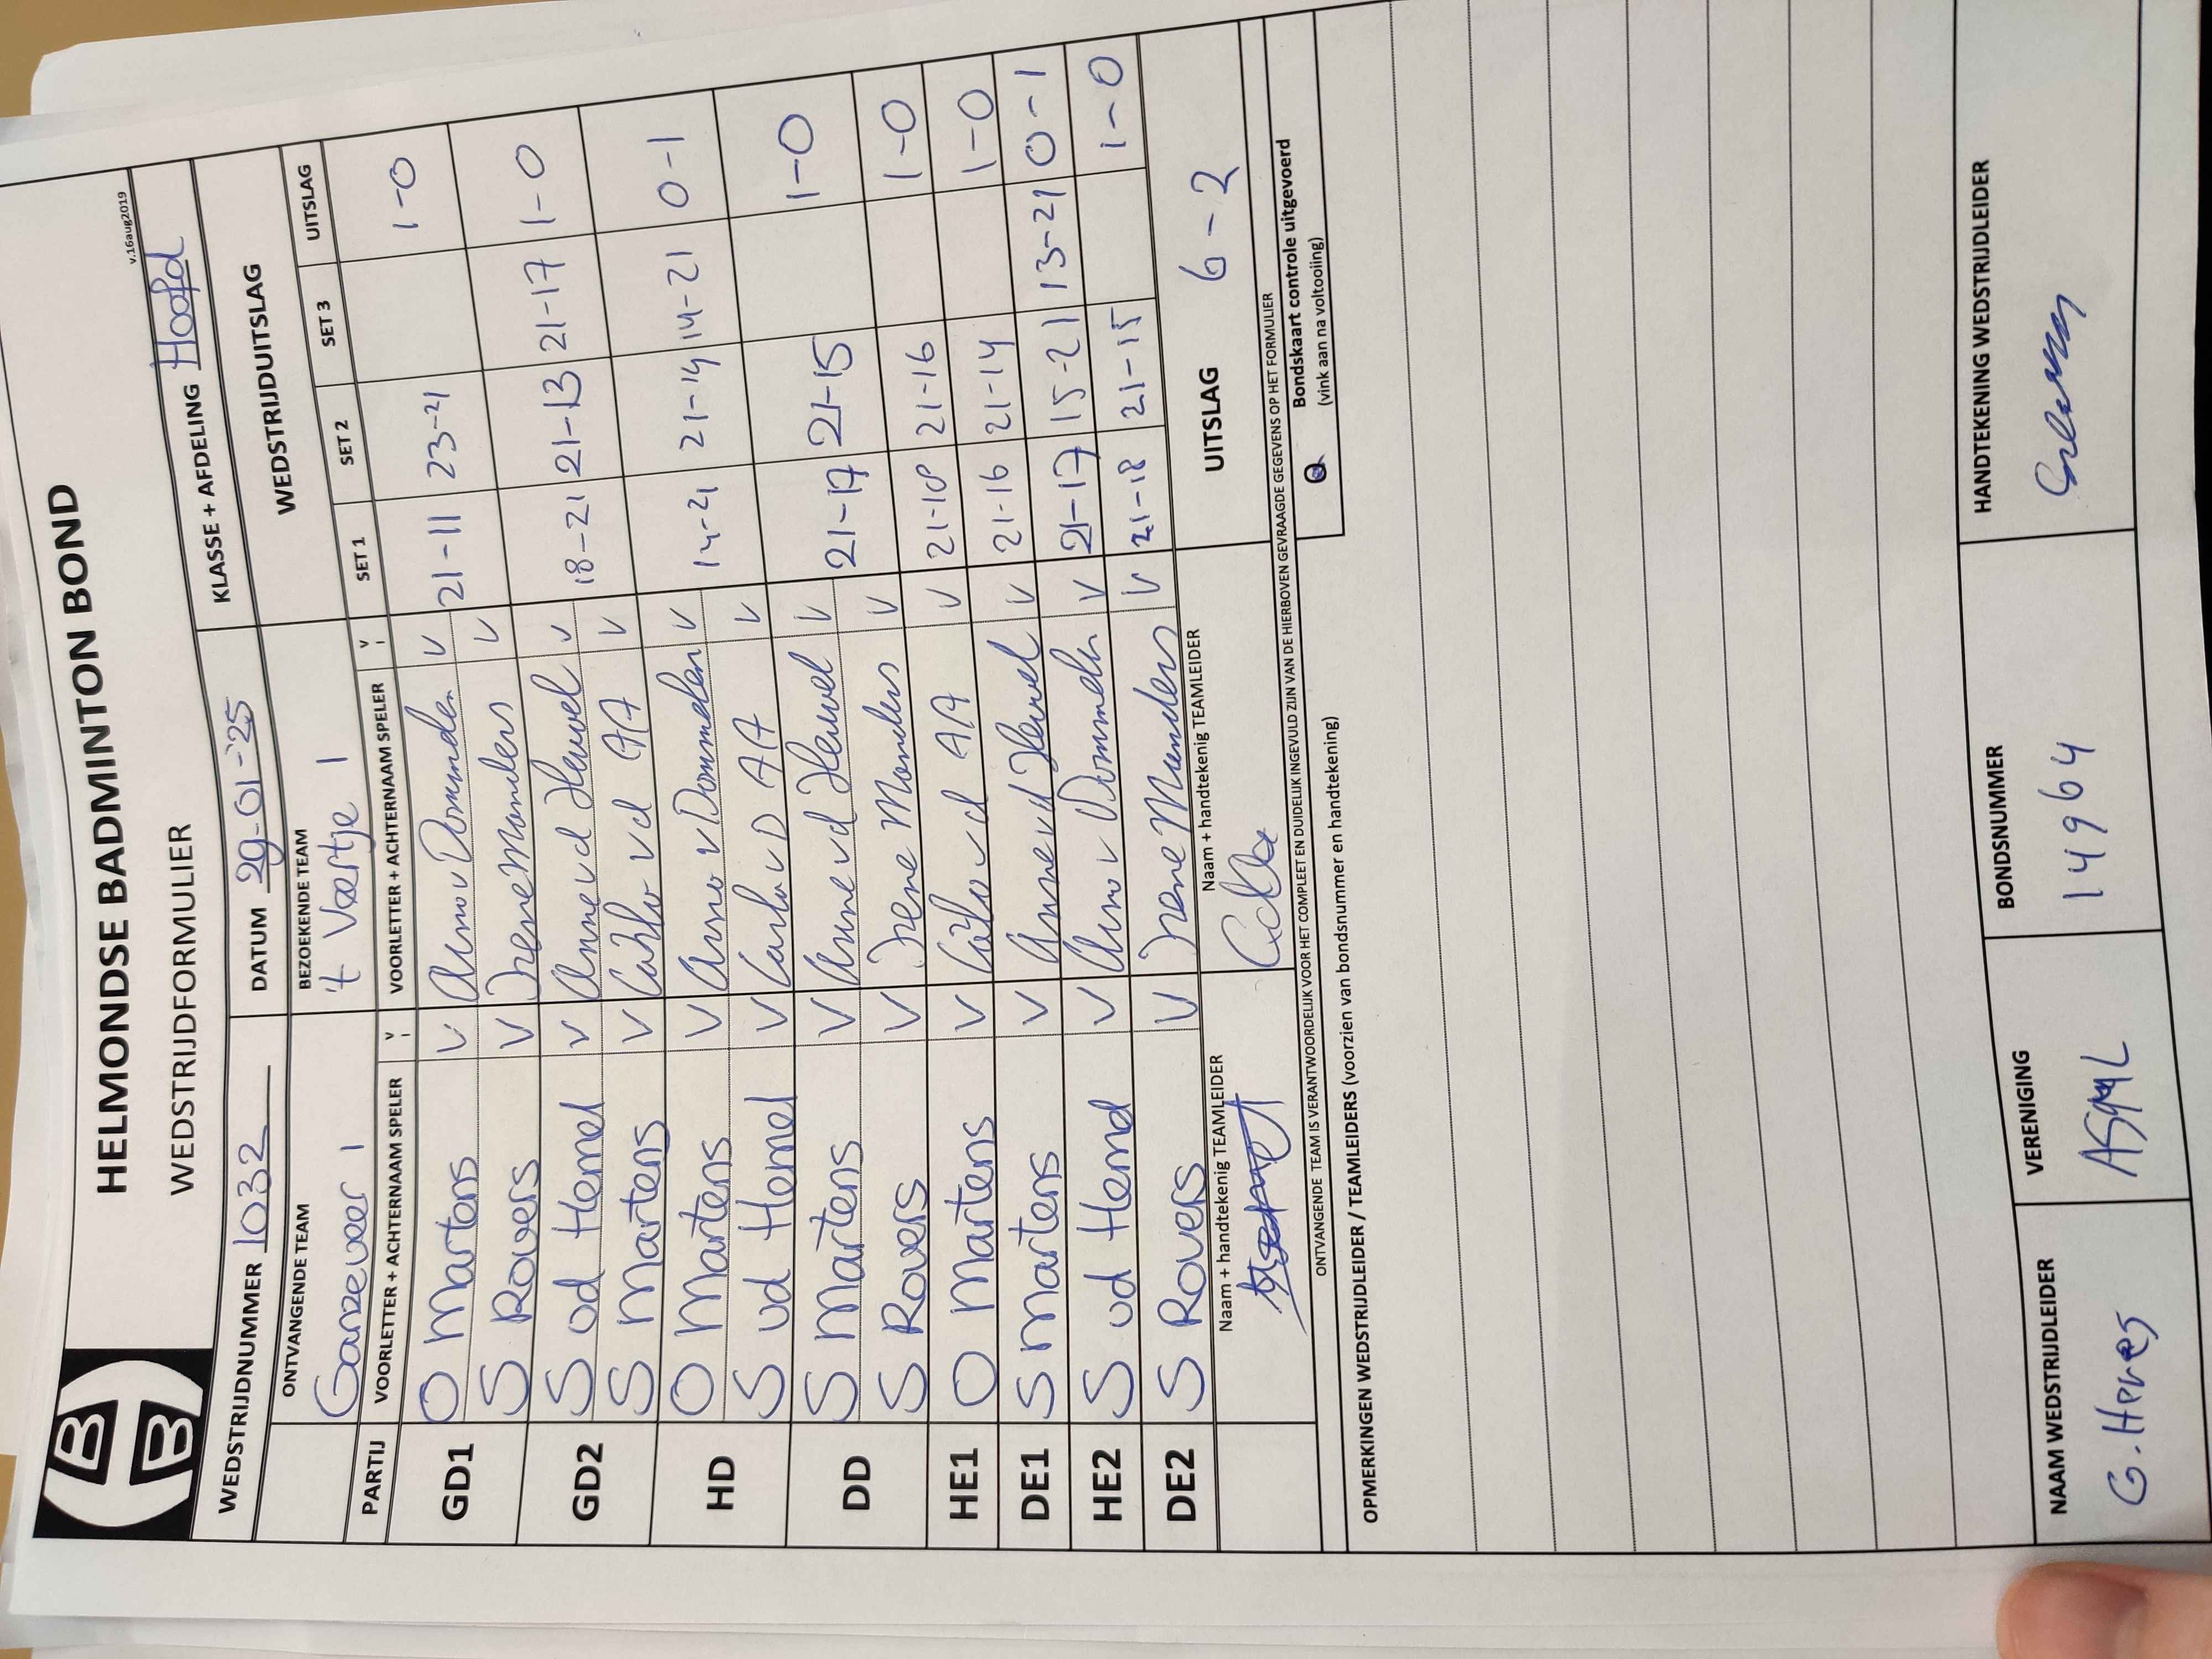 HB
B
HELMONDSE BADMINTON BOND
WEDSTRIJDFORMULIER
v.16aug2019
WEDSTRIJDNUMMER 1032 DATUM 29-01-'25 KLASSE + AFDELING Hoofd
ONTVANGENDE TEAM BEZOEKENDE TEAM WEDSTRIJDUITSLAG
Ganzeveer 1 't Vaartje 1
PARTIJ VOORLETTER + ACHTERNAAM SPELER V VOORLETTER + ACHTERNAAM SPELER V SET 1 SET 2 SET 3 UITSLAG
GD1 O Martens V Arno v Dommelen V 21-11 23-21 1-0
S Rovers V Irene Manders V
GD2 S vd Hemel V Anne vd Heuvel V 18-21 21-13 21-17 1-0
S Martens V Carlo vd AA V
HD O Martens V Arno v Dommelen V 14-21 21-14 14-21 0-1
S vd Hemel V Carlo v D AA V
DD S Martens V Anne vd Heuvel V 21-17 21-15 1-0
S Rovers V Irene Manders V
HE1 O Martens V Carlo vd AA V 21-18 21-16 1-0
DE1 S Martens V Anne vd Heuvel V 21-16 21-14 1-0
HE2 S vd Hemel V Arno v Dommelen V 21-17 15-21 13-21 0-1
DE2 S Rovers V Irene Manders V 21-18 21-15 1-0
Naam + handtekenig TEAMLEIDER Naam + handtekenig TEAMLEIDER UITSLAG 6-2
ONTVANGENDE TEAM IS VERANTWOORDELIJK VOOR HET COMPLEET EN DUIDELIJK INGEVULD ZIJN VAN DE HIERBOVEN GEVRAAGDE GEGEVENS OP HET FORMULIER
Bondskaart controle uitgevoerd
(vink aan na voltooiing)
OPMERKINGEN WEDSTRIJDLEIDER / TEAMLEIDERS (voorzien van bondsnummer en handtekening)
NAAM WEDSTRIJDLEIDER VERENIGING BONDSNUMMER HANDTEKENING WEDSTRIJDLEIDER
G. 14964